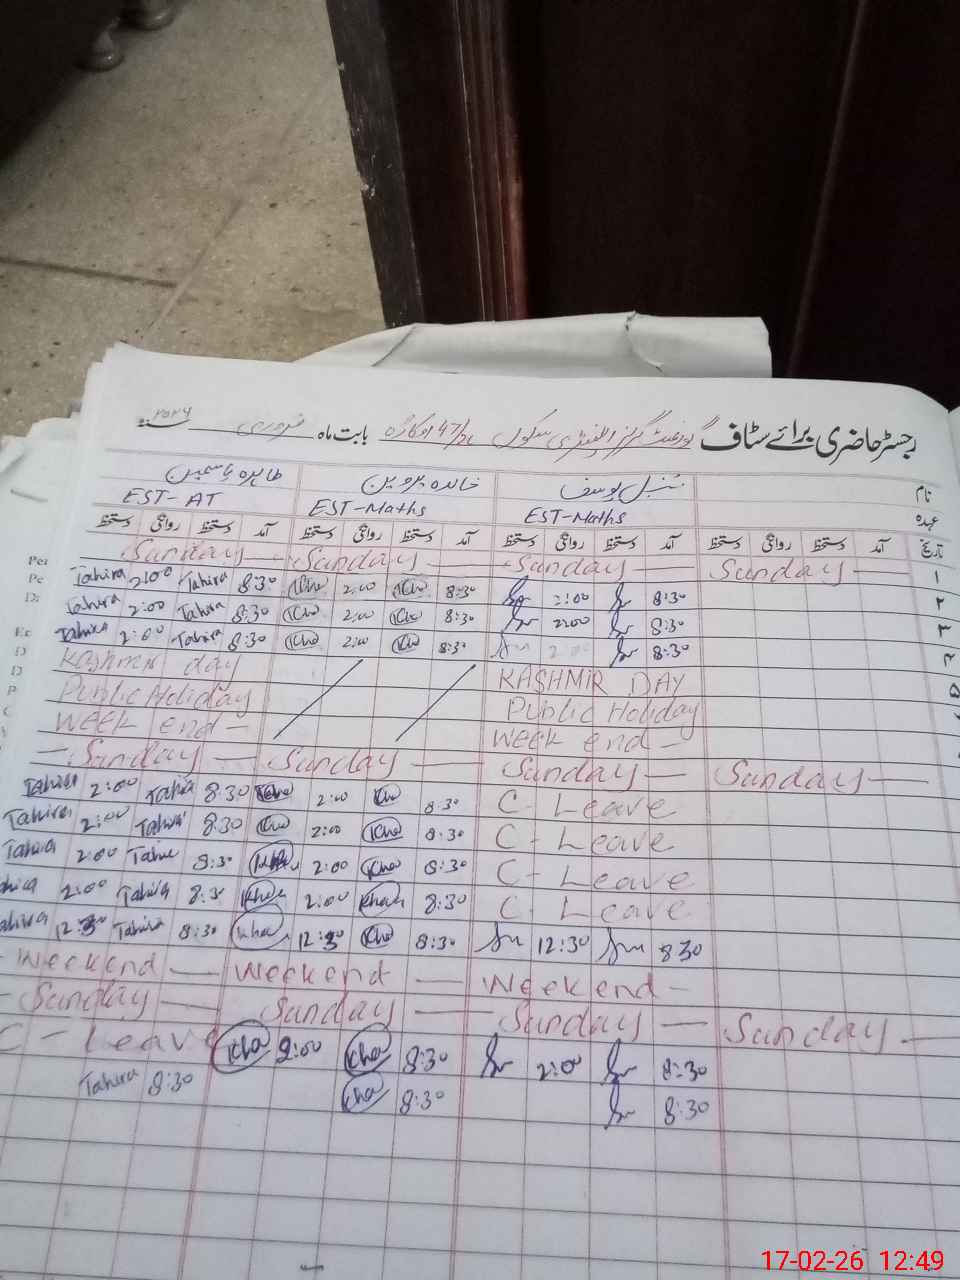 رجسٹر حاضری برائے سٹاف گورنمنٹ گرلز ایلیمنٹری سکول 47/2L اوکاڑہ بابت ماہ فروری سنہ ۲۰۲۶
نام سنبل یوسف خالدہ پروین طاہرہ یاسمین
عہدہ EST-Maths EST-Maths EST-AT
تاریخ آمد دستخط روانگی دستخط آمد دستخط روانگی دستخط آمد دستخط روانگی دستخط آمد دستخط روانگی دستخط
Sunday — Sunday — Sunday — Sunday — ۱
Tahira 2:00 Tahira 8:30 Kha 2:00 Kha 8:30 2:00 8:30 ۲
Tahira 2:00 Tahira 8:30 Kha 2:00 Kha 8:30 2:00 8:30 ۳
Tahira 2:00 Tahira 8:30 Kha 2:00 Kha 8:30 2:00 8:30 ۴
Kashmir day KASHMIR DAY ۵
Public Holiday Public Holiday
Week end — Week end —
— Sunday — Sunday — Sunday — Sunday —
Tahira 2:00 Tahira 8:30 Kha 2:00 Kha 8:30 C - Leave
Tahira 2:00 Tahira 8:30 Kha 2:00 Kha 8:30 C - Leave
Tahira 2:00 Tahira 8:30 2:00 Kha 8:30 C - Leave
Tahira 2:00 Tahira 8:30 Kha 2:00 Kha 8:30 C - Leave
Tahira 12:30 Tahira 8:30 Kha 12:30 Kha 8:30 12:30 830
- Weekend — Weekend — Weekend -
- Sunday — Sunday — Sunday — Sunday —
C - Leave Kha 2:00 Kha 8:30 2:00 8:30
Tahira 8:30 Kha 8:30 8:30
17-02-26 12:49